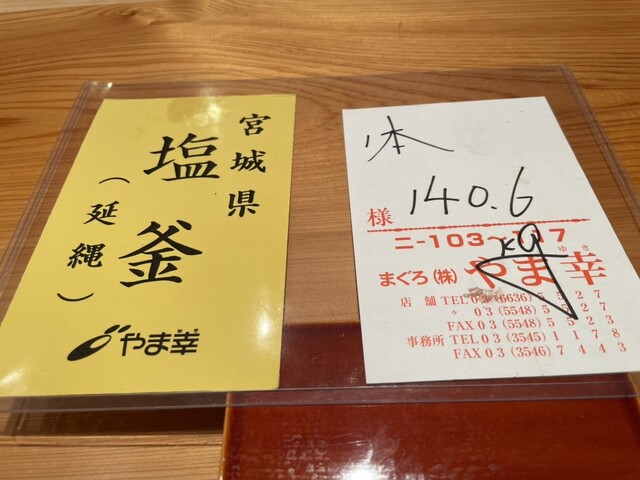 宮城県
塩釜
（延縄）
やま幸
本
140.6
kg
様
ニ-103~117
ゆき
まぐろ(株)やま幸
店舗 TEL 03 (6636) 5527
〃 03 (5548) 5527
FAX 03 (5548) 5523
事務所 TEL 03 (3545) 1178
FAX 03 (3546) 7443